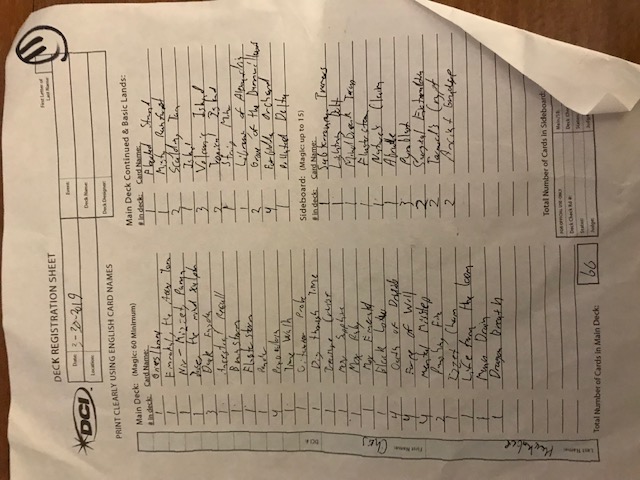 DECK REGISTRATION SHEET
First Letter of Last Name
H
DCI
Date: 3-30-2019
Event:
Location:
Deck Name:
Deck Designer:
PRINT CLEARLY USING ENGLISH CARD NAMES
Main Deck: (Magic: 60 Minimum)
# in deck: Card Name:
1
1 Emrakul, the Aeons Torn
1 Niv-Mizzet, Parun
1 Jace, the mind sculptor
3 Dack Fayden
1 Ancestral Recall
1 Brainstorm
1 Flusterstorm
1 Ponder
4
1 Time Walk
1 Gitaxian Probe
1 Dig through Time
1 Treasure Cruise
1 Mox Sapphire
1 Mox Ruby
Mox Emerald
1 Black Lotus
4 Oath of Druids
4 Force of Will
4 Mental Misstep
2
Izzet Charm
1 Life from the Loam
1 Mana Drain
1 Dragon Breath
Total Number of Cards in Main Deck: 60
Main Deck Continued & Basic Lands:
# in deck: Card Name:
1 Flooded Strand
1 Misty Rainforest
2 Scalding Tarn
Island
3 Volcanic Island
2 Tropical Island
1 Strip Mine
1 Library of Alexandria
2 Grove of the Burnwillows
4 Forbidden Orchard
1 Polluted Delta
Sideboard: (Magic: up to 15)
# in deck: Card Name:
1
1 Lightning Bolt
1 Mindbreak Trap
1 Flusterstorm
1 Nature's Claim
1 Abrade
3 Pyroblast
2 Surgical Extraction
2 Tormod's Crypt
2 Ancient Grudge
Total Number of Cards in Sideboard:
FOR OFFICIAL USE ONLY
Deck Check Rd #:
Status:
Judge:
DCI #:
First Name: Chris
Last Name: